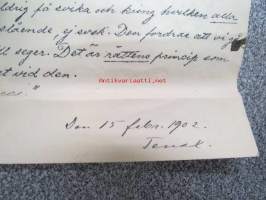 ldrig få svika och kring hvilken alla
slående, y svek. Den fordrar att vi gå
ll seger. Det är rättens princip som
t vid den.
Antikvariaatti.net
Den 15 febr. 1902.